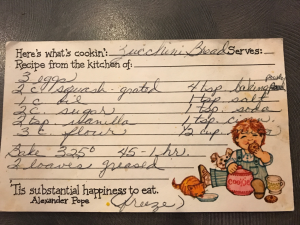 Here's what's cookin': Zucchini Bread Serves:
Recipe from the kitchen of:
3 eggs
2 c. squash - grated 4 tsp. baking powder
1 c. oil 1 tsp. salt
2 c. sugar 1 tsp. soda
2 tsp. vanilla 1 tsp. cinn.
3 c. flour 1/2 cup
Bake 325° 45 - 1 hr.
2 loaves greased
'Tis substantial happiness to eat.
Alexander Pope (freeze)
COOKIES